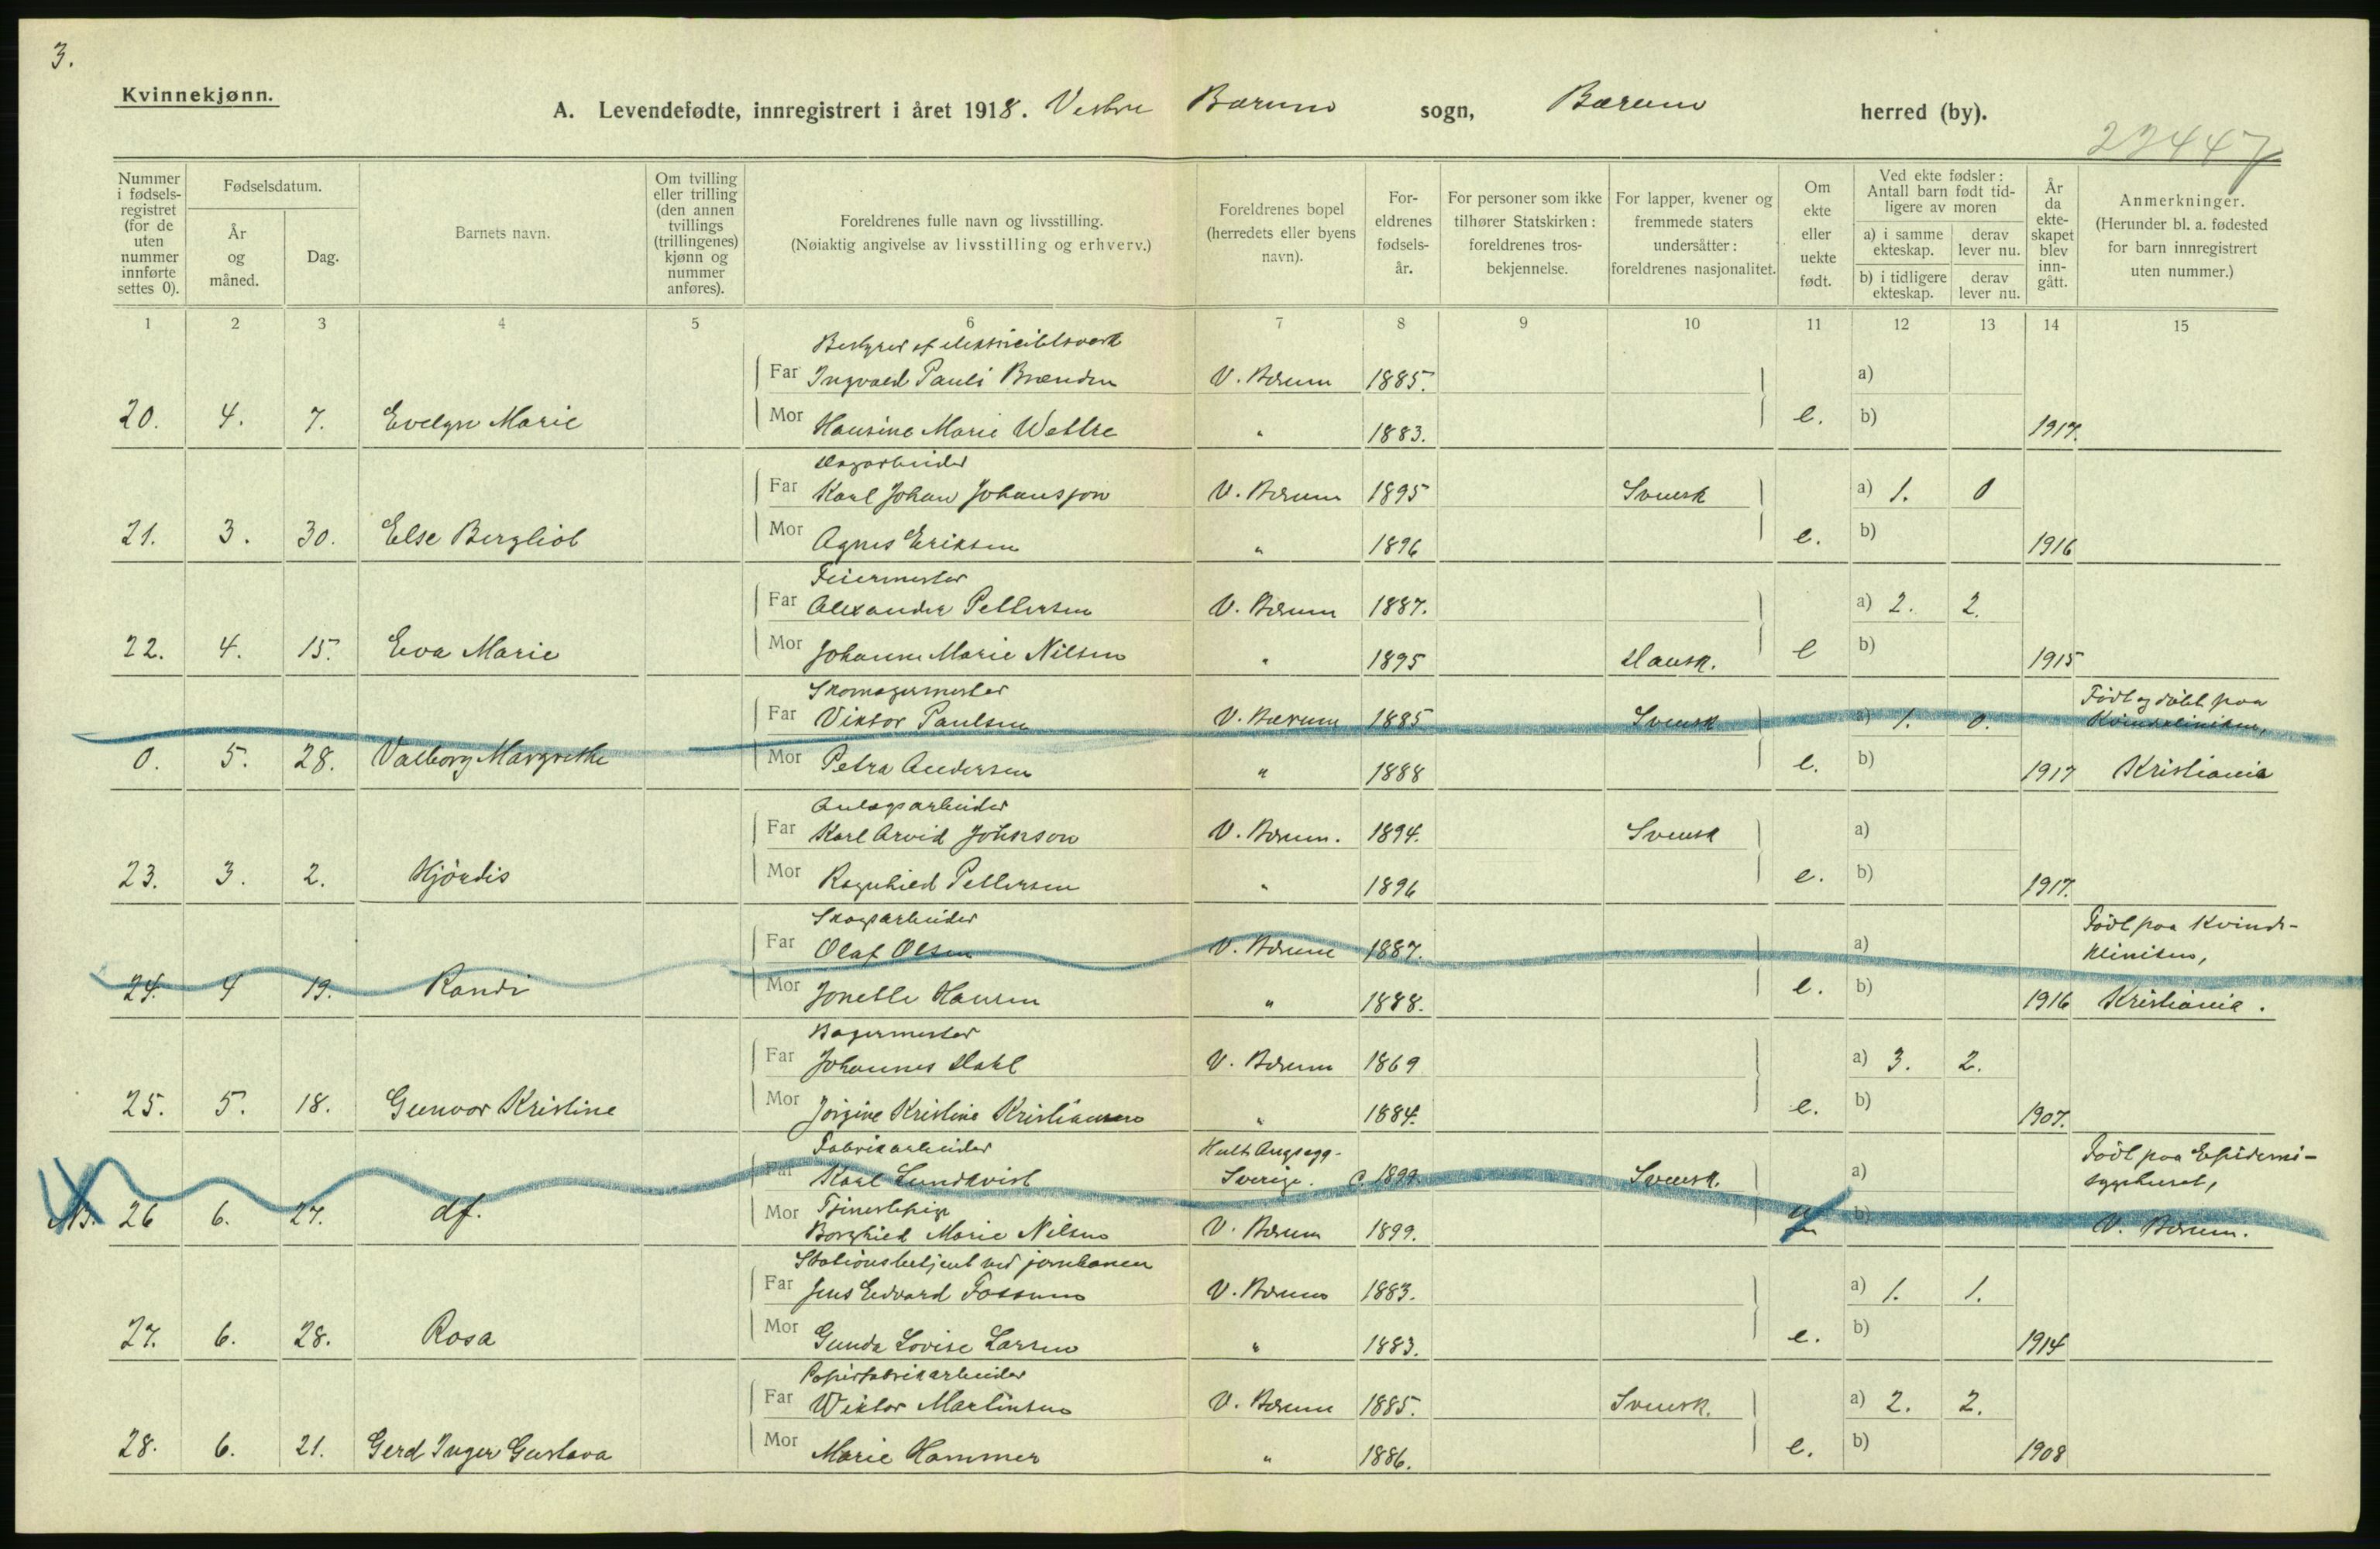 3.
Kvinnekjønn.
A. Levendefødte, innregistrert i året 1918. Vestre Bærum sogn, Bærum herred (by).
23447
Nummer i fødselsregistret (for de uten nummer innførte settes 0).
Fødselsdatum.
År og måned.
Dag.
Barnets navn.
Om tvilling eller trilling (den annen tvillings (trillingenes) kjønn og nummer anføres).
Foreldrenes fulle navn og livsstilling.
(Nøiaktig angivelse av livsstilling og erhverv.)
Foreldrenes bopel (herredets eller byens navn).
Foreldrenes fødselsår.
For personer som ikke tilhører Statskirken: foreldrenes trosbekjennelse.
For lapper, kvener og fremmede staters undersåtter: foreldrenes nasjonalitet.
Om ekte eller uekte født.
Ved ekte fødsler: Antall barn født tidligere av moren
a) i samme ekteskap. derav lever nu.
b) i tidligere ekteskap. derav lever nu.
År da ekteskapet blev inngått.
Anmerkninger.
(Herunder bl. a. fødested for barn innregistrert uten nummer.)
1 2 3 4 5 6 7 8 9 10 11 12 13 14 15
Bestyrer af elektricitetsverk
Far Ingvald Pauli Brænden V. Bærum 1885. a)
20. 4. 7. Evelyn Marie Mor Hansine Marie Wettre " 1883. e. b) 1917.
Dagarbeider
Far Karl Johan Johansson V. Bærum 1895 Svensk a) 1. 0
21. 3. 30. Else Bergliot Mor Agnes Eriksen " 1896 e. b) 1916
Feiermester
Far Alexander Pettersen V. Bærum 1887. a) 2. 2.
22. 4. 15. Eva Marie Mor Johanne Marie Nilsen " 1895 Dansk. e b) 1915
Skomagermester Født og døbt paa
Far Viktor Paulsen V. Bærum 1885 Svensk a) 1. 0. Kvindeklinikken,
0. 5. 28. Valborg Margrethe Mor Petra Andersen " 1888 e. b) 1917 Kristiania
Anlægsarbeider
Far Karl Arvid Johnson V. Bærum. 1894. Svensk a)
23. 3. 2. Hjørdis Mor Ragnhild Pettersen " 1896 e. b) 1917.
Skogsarbeider Født paa Kvinde-
Far Olaf Olsen V. Bærum 1887. a) kliniken,
24. 4 19. Randi Mor Jonette Hansen " 1888. e. b) 1916 Kristiania.
Bagermester
Far Johannes Dahl V. Bærum 1869 a) 3. 2.
25. 5. 18. Gunvor Kristine Mor Jørgine Kristine Kristiansen " 1884. e. b) 1907.
Fabrikarbeider Født paa Epidemi-
Far Karl Lundkvist Sverige. c. 1899. Svensk. a) sygehuset,
26 6. 27. df. Mor Tjenestepige
Borghild Marie Nilsen V. Bærum 1899. b) V. Bærum.
Stationsbetjent ved jernbanen
Far Jens Edvard Fossum V. Bærum 1883. a) 1. 1.
27. 6. 28. Rosa Mor Gunda Lovise Larsen " 1883. e. b) 1914
Papirfabrikarbeider
Far Wiktor Martinsen V. Bærum 1885. Svensk. a) 2. 2.
28. 6. 21. Gerd Inger Gustava Mor Marie Hammer " 1886. e. b) 1908